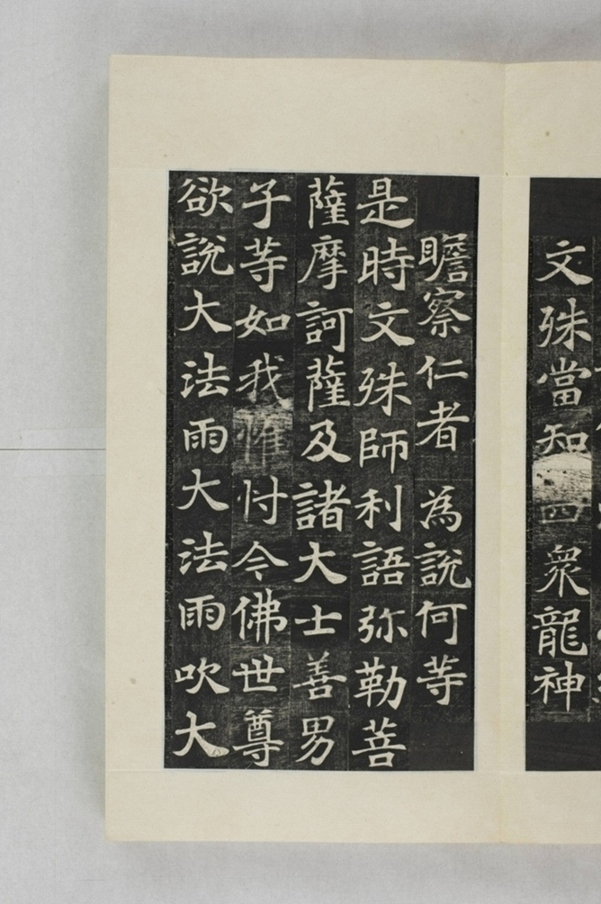 文殊當知四衆龍神
瞻察仁者為說何等
是時文殊師利語弥勒菩
薩摩訶薩及諸大士善男
子等如我惟忖今佛世尊
欲說大法雨大法雨吹大